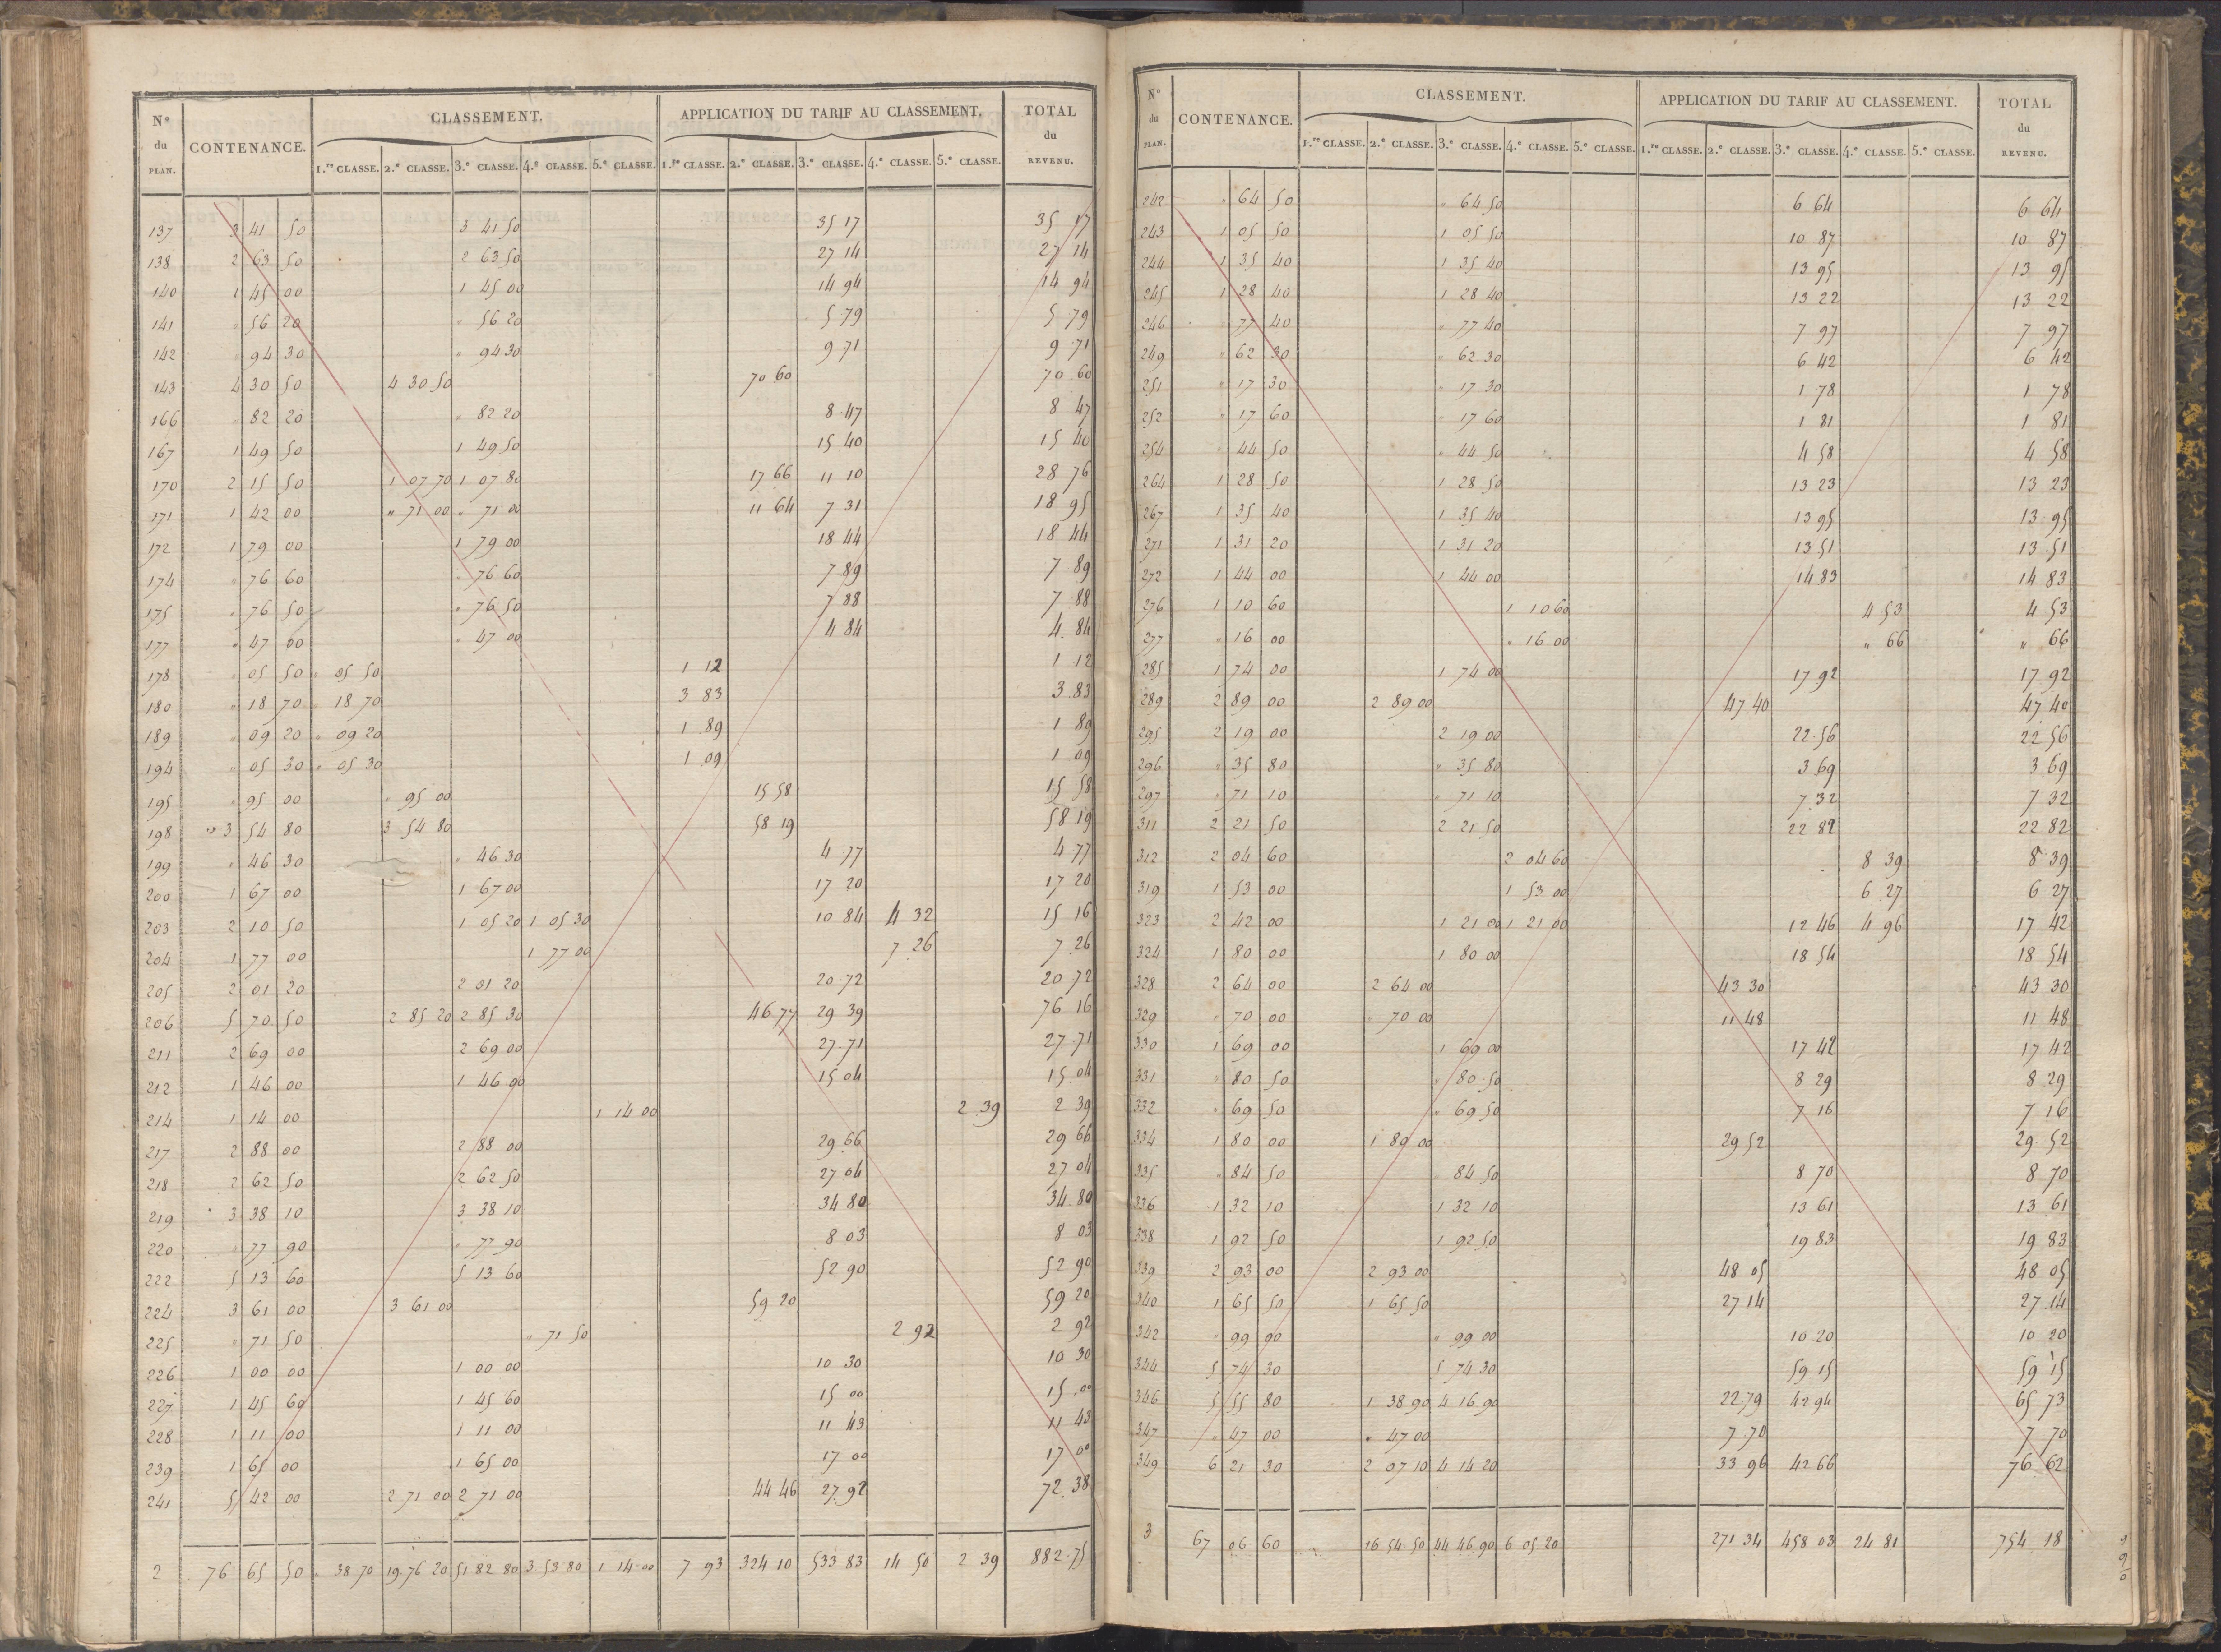 N° du PLAN. CONTENANCE. CLASSEMENT. APPLICATION DU TARIF AU CLASSEMENT. TOTAL du REVENU.
1.re CLASSE. 2.e CLASSE. 3.e CLASSE. 4.e CLASSE. 5.e CLASSE. 1.re CLASSE. 2.e CLASSE. 3.e CLASSE. 4.e CLASSE. 5.e CLASSE.
137 3 41 50 3 41 50 35 17 35 17
138 2 63 50 2 63 50 27 14 27 14
140 1 45 00 1 45 00 14 94 14 94
141 " 56 20 " 56 20 5 79 5 79
142 " 94 30 " 94 30 9 71 9 71
143 4 30 50 4 30 50 70 60 70 60
166 " 82 20 " 82 20 8 47 8 47
167 1 49 50 1 49 50 15 40 15 40
170 2 15 50 1 07 70 1 07 80 17 66 11 10 28 76
171 1 42 00 " 71 00 " 71 00 11 64 7 31 18 95
172 1 79 00 1 79 00 18 44 18 44
174 " 76 60 " 76 60 7 89 7 89
175 " 76 50 " 76 50 7 88 7 88
177 " 47 00 " 47 00 4 84 4 84
178 " 05 50 " 05 50 1 12 1 12
180 " 18 70 " 18 70 3 83 3 83
189 " 09 20 " 09 20 1 89 1 89
194 " 05 30 " 05 30 1 09 1 09
195 " 95 00 " 95 00 15 58 15 58
198 3 54 80 3 54 80 58 19 58 19
199 " 46 30 " 46 30 4 77 4 77
200 1 67 00 1 67 00 17 20 17 20
203 2 10 50 1 05 20 1 05 30 10 84 4 32 15 16
204 1 77 00 1 77 00 7 26 7 26
205 2 01 20 2 01 20 20 72 20 72
206 5 70 50 2 85 20 2 85 30 46 77 29 39 76 16
211 2 69 00 2 69 00 27 71 27 71
212 1 46 00 1 46 00 15 04 15 04
214 1 14 00 1 14 00 2 39 2 39
217 2 88 00 2 88 00 29 66 29 66
218 2 62 50 2 62 50 27 04 27 04
219 3 38 10 3 38 10 34 80 34 80
220 " 77 90 " 77 90 8 03 8 03
222 5 13 60 5 13 60 52 90 52 90
224 3 61 00 3 61 00 59 20 59 20
225 " 71 50 " 71 50 2 92 2 92
226 1 00 00 1 00 00 10 30 10 30
227 1 45 60 1 45 60 15 00 15 00
228 1 11 00 1 11 00 11 43 11 43
239 1 65 00 1 65 00 17 00 17 00
241 5 42 00 2 71 00 2 71 00 44 46 27 92 72 38
2 76 65 50 " 38 70 19 76 20 51 82 80 3 53 80 1 14 00 7 93 324 10 533 83 14 50 2 39 882 75
N° du PLAN. CONTENANCE. CLASSEMENT. APPLICATION DU TARIF AU CLASSEMENT. TOTAL du REVENU.
1.re CLASSE. 2.e CLASSE. 3.e CLASSE. 4.e CLASSE. 5.e CLASSE. 1.re CLASSE. 2.e CLASSE. 3.e CLASSE. 4.e CLASSE. 5.e CLASSE.
242 " 64 50 " 64 50 6 64 6 64
243 1 05 50 1 05 50 10 87 10 87
244 1 35 40 1 35 40 13 95 13 95
245 1 28 40 1 28 40 13 22 13 22
246 " 77 40 " 77 40 7 97 7 97
249 " 62 30 " 62 30 6 42 6 42
251 " 17 30 " 17 30 1 78 1 78
252 " 17 60 " 17 60 1 81 1 81
254 " 44 50 " 44 50 4 58 4 58
264 1 28 50 1 28 50 13 23 13 23
267 1 35 40 1 35 40 13 95 13 95
271 1 31 20 1 31 20 13 51 13 51
272 1 44 00 1 44 00 14 83 14 83
276 1 10 60 1 10 60 4 53 4 53
277 " 16 00 " 16 00 " 66 " 66
285 1 74 00 1 74 00 17 92 17 92
289 2 89 00 2 89 00 47 40 47 40
295 2 19 00 2 19 00 22 56 22 56
296 " 35 80 " 35 80 3 69 3 69
297 " 71 10 " 71 10 7 32 7 32
311 2 21 50 2 21 50 22 82 22 82
312 2 04 60 2 04 60 8 39 8 39
319 1 53 00 1 53 00 6 27 6 27
323 2 42 00 1 21 00 1 21 00 12 46 4 96 17 42
324 1 80 00 1 80 00 18 54 18 54
328 2 64 00 2 64 00 43 30 43 30
329 " 70 00 " 70 00 11 48 11 48
330 1 69 00 1 69 00 17 42 17 42
331 " 80 50 " 80 50 8 29 8 29
332 " 69 50 " 69 50 7 16 7 16
334 1 80 00 1 80 00 29 52 29 52
335 " 84 50 " 84 50 8 70 8 70
336 1 32 10 1 32 10 13 61 13 61
338 1 92 50 1 92 50 19 83 19 83
339 2 93 00 2 93 00 48 05 48 05
340 1 65 50 1 65 50 27 14 27 14
342 " 99 00 " 99 00 10 20 10 20
344 5 74 30 5 74 30 59 15 59 15
346 5 55 80 1 38 90 4 16 90 22 79 42 94 65 73
347 " 47 00 " 47 00 7 70 7 70
349 6 21 30 2 07 10 4 14 20 33 96 42 66 76 62
3 67 06 60 16 54 50 44 46 90 6 05 20 271 34 458 03 24 81 754 18